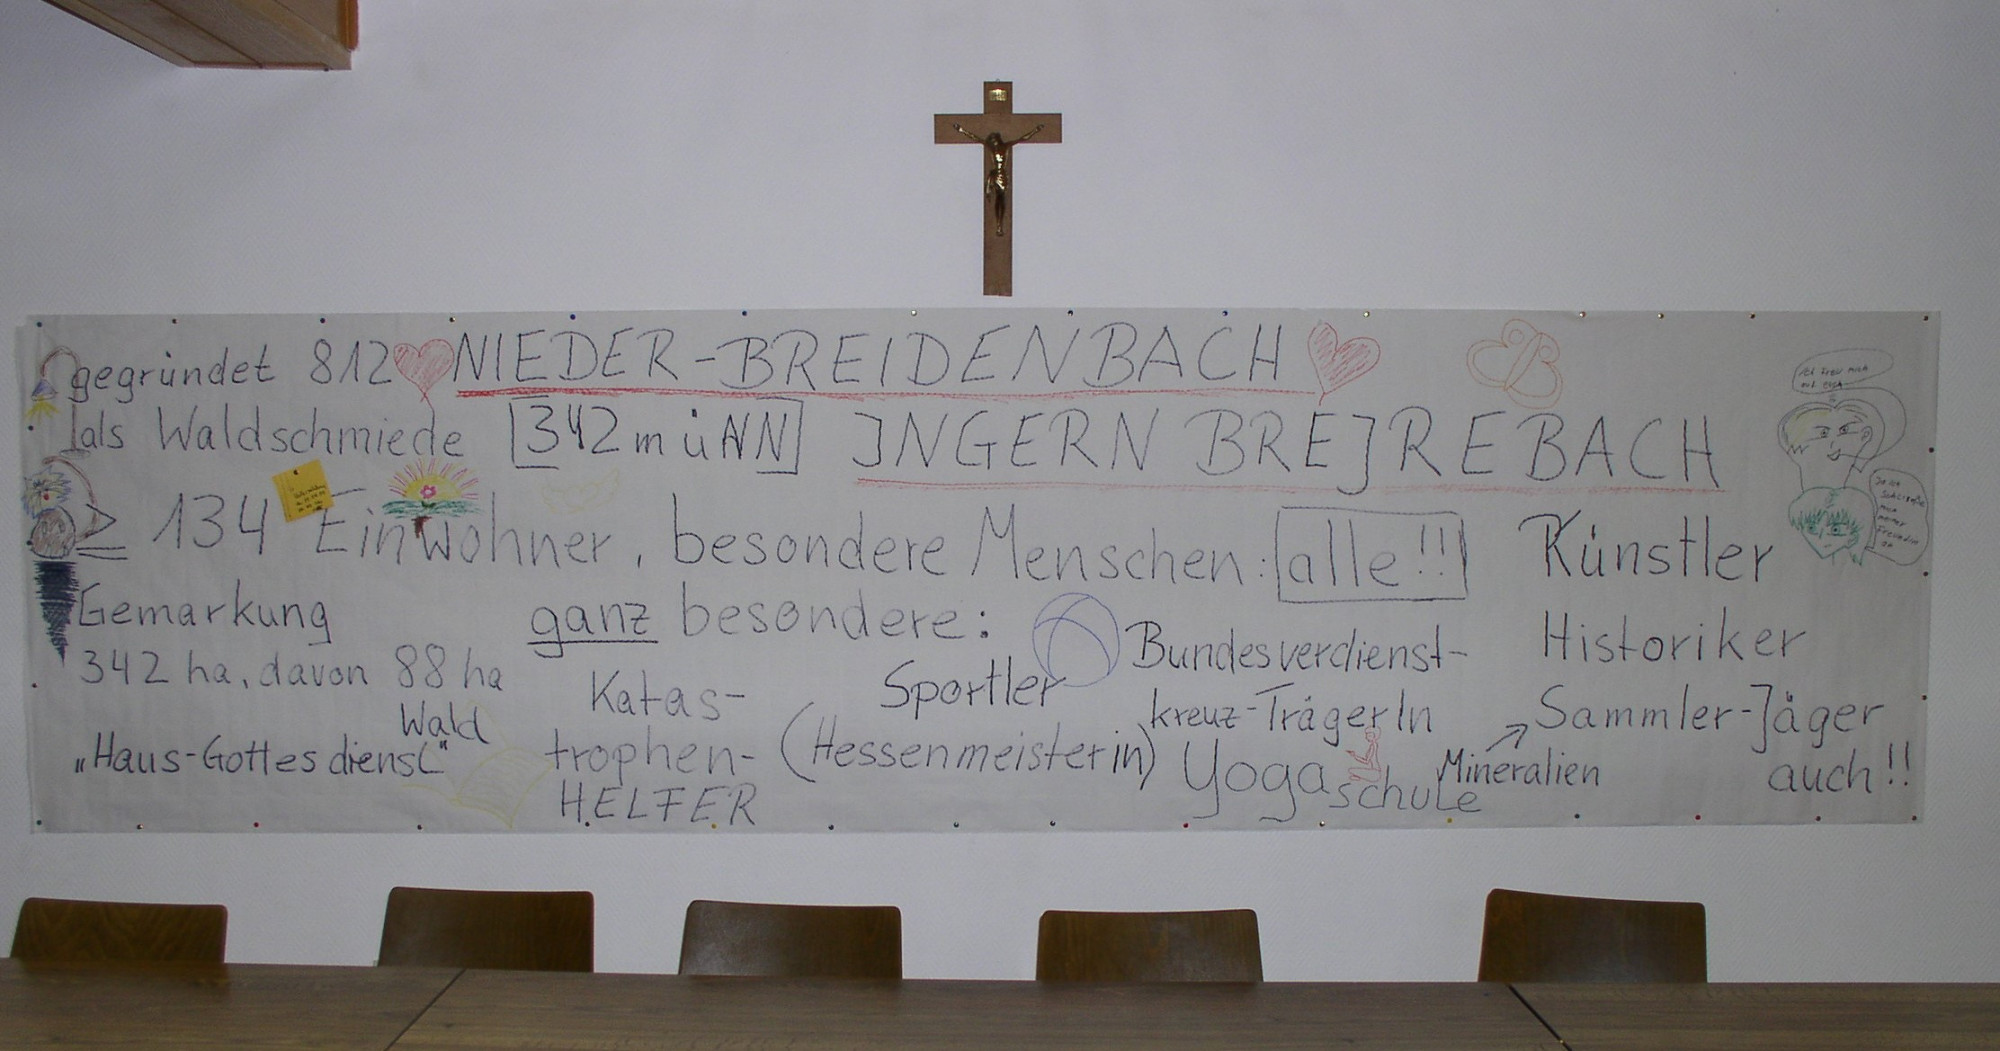 gegründet 812 NIEDER-BREIDENBACH
als Waldschmiede 342 m üNN JNGERN BREJREBACH
≥ 134 Einwohner, besondere Menschen: alle!!
Gemarkung
342 ha, davon 88 ha
Wald
„Haus-Gottesdienst“
ganz besondere:
Katas-
trophen-
HELFER
Sportler
(Hessenmeisterin)
Bundesverdienst-
kreuz-TrägerIn
Yogaschule
Künstler
Historiker
Sammler-Jäger
Mineralien
auch!!
ich freu mich
auf euch